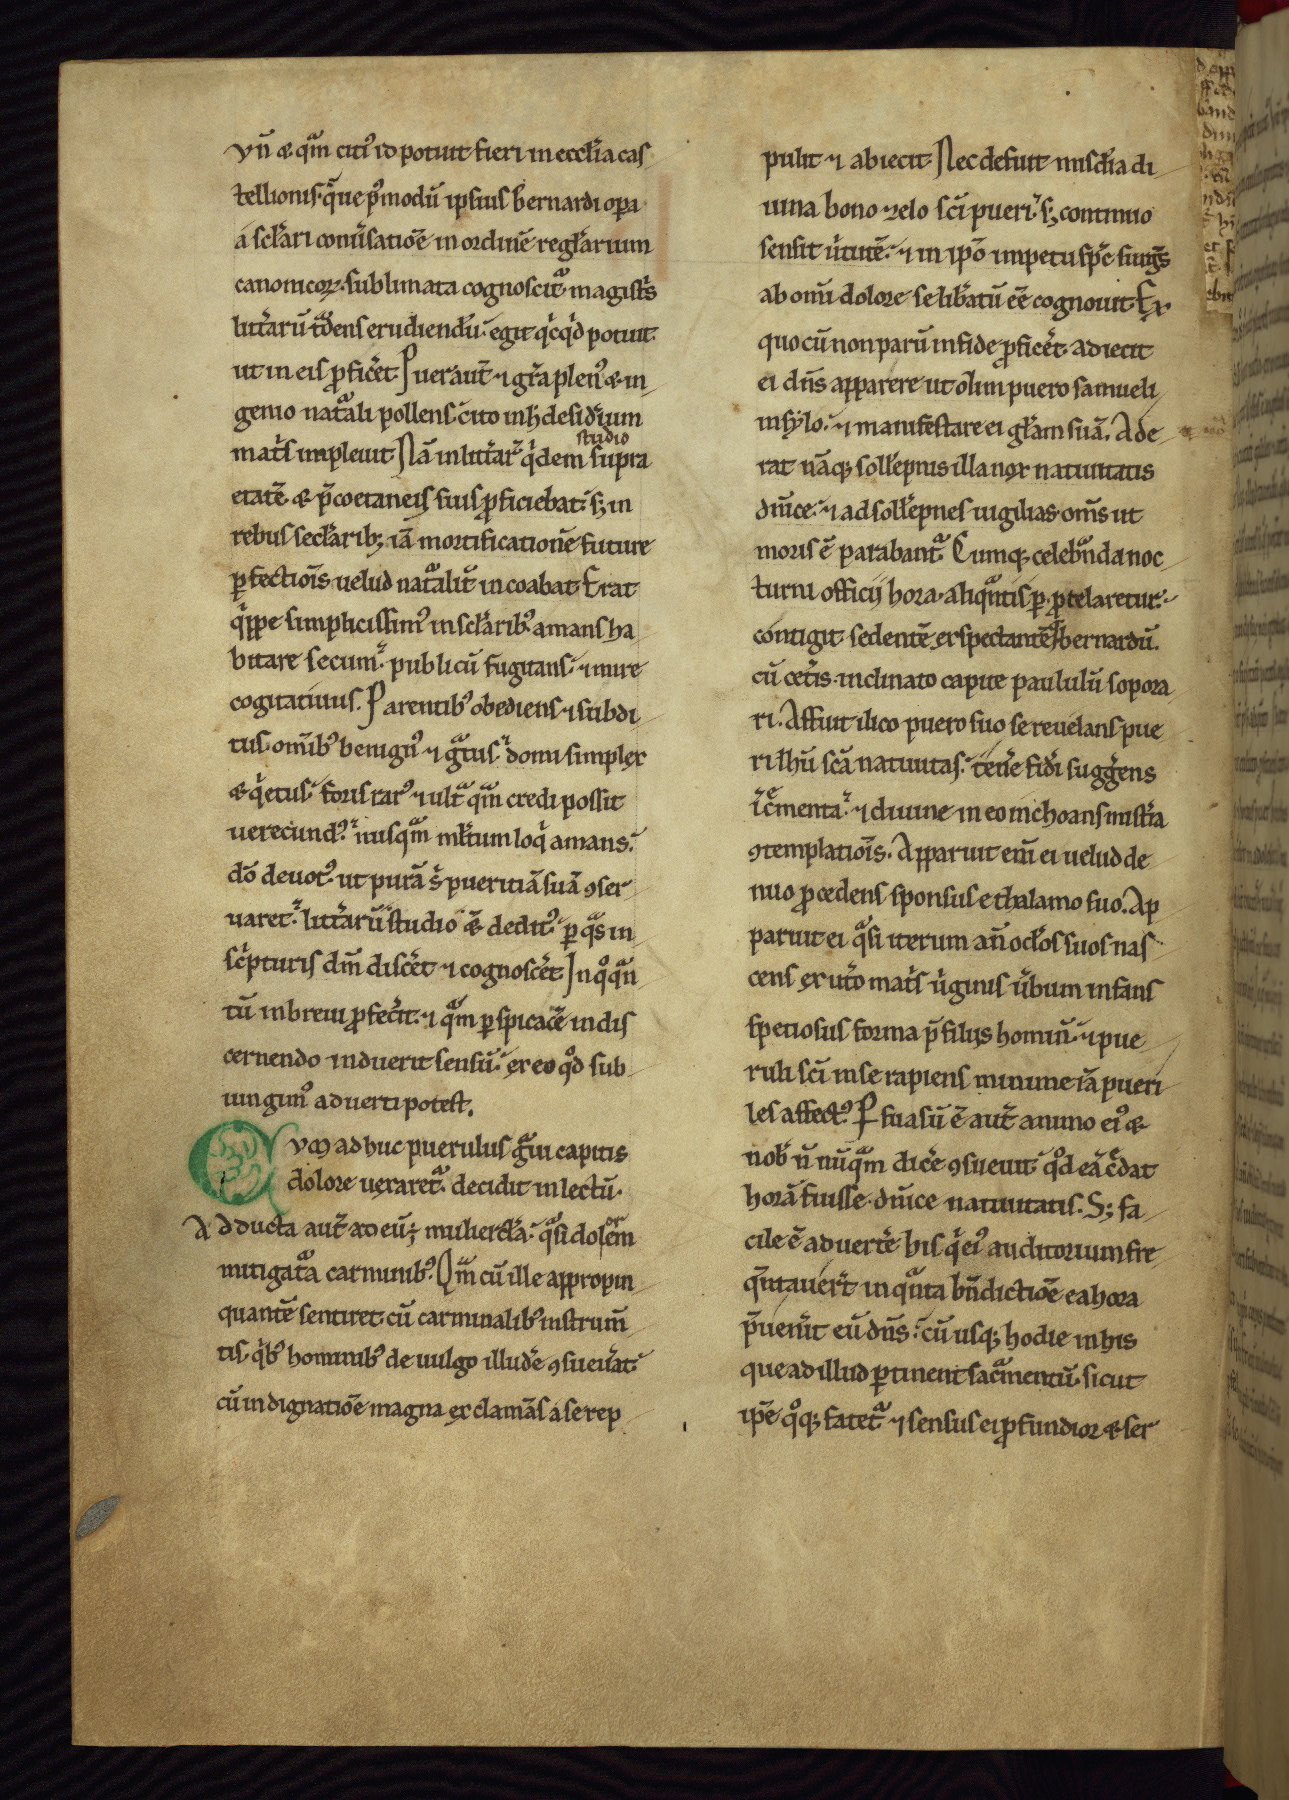 vn̄ & qͣm citiꝰ id potuit fieri in eccl̄ia cas
tellionis. q̄ ue p̄modū ipsius bernardi opera
a scl̄ari conuˀsatiōe in ordinē regl̄arium
canonicoꝝ. sublimata cognoscit᷑ magistˀs
litt̄arū tͣdens erudiendū. egit qͥcqͥd potuit
ut in eis ꝓficˀet. Puer aut̄ ⁊ gr̄a plenꝰ & in
genio natͣali pollens. cito in h̄ desidˀium
matˀs impleuit. Nā in litt̄arꝝ qͥdem studio supra
etatē & p̄ coetaneis suis ꝓficiebat. sꝫ in
rebus secl̄aribꝫ iā mortificationē future
ꝑfectiōis uelud natͣalit̄ incoabat. Erat
qͥppe simplicissimꝰ in scl̄aribꝰ. amans ha
bitare secum. publicū fugitans. ⁊ mire
cogitatiuus. Parentibꝰ obediens ⁊ subdi
tus. om̄ibꝰ benignꝰ ⁊ gͣtus. domi simplex
& qͥetus. foris rarꝰ. ⁊ ultͣ qͣm credi possit
uerecundꝰ. nusqͣm ml̄tum loqͥ amans.
dō deuotꝰ. ut purā s̄ pueritiā suā ꝯser
uaret. litt̄arū studio & deditꝰ. ꝑ qͣs in
scͥpturis dm̄ discˀet ⁊ cognoscˀet. In qͦ qͣn
tū in breui ꝓfecˀit. ⁊ qͣm ꝑspicacē in dis
cernendo induerit sensū. ex eo qͦd sub
iungimꝰ aduerti potest.
Cym adhuc puerulus gͣui capitis
dolore uexaretᷓ. decidit in lectū.
Adducta aut̄ ad eū ÷ muliercl̄a. qͣsi dolorem
mitigatͣa carminibꝰ. Qͣm cū ille appropin
quantē sentiret cū carminalibꝰ instrum̄
tis. qͥbꝰ hominibꝰ de uulgo illudˀe ꝯsueuˀat
cū indignatiōe magna exclamās a se rep
pulit ⁊ abiecit. Nec defuit mis̄dia di
uina bono zelo sc̄i pueri. sꝫ continuo
sensit uˀtutē. ⁊ in ip̄o impetu sp̄c surgˀs
ab omi dolore se libˀatū ēē cognouit. Ex
quo cū non parū in fide ꝓficˀet. adiecit
ei dn̄s apparere ut olim puero samueli
in sylo. ⁊ manifestare ei gl̄am suā. Ade
rat nāqꝫ sollēpnis illa nox natiuitatis
diuˀce. ⁊ ad sollēpnes uigilias om̄s ut
moris ē parabantᷓ. Cumqꝫ celebͣnda noc
turni officij hora. aliqͣntisꝑ ꝓtelaretur.
contigit sedentē exspectantēqꝫ bernardū.
cū cetˀis. inclinato capite paululū sopora
ri. Affuit ilico puero suo se reuelans pue
ri ih̄u sc̄a natiuitas. tenˀe fidˀi suggˀens
icͤmenta. ⁊ diuine in eo inchoans mistˀia
ꝯtemplatiōis. Apparuit em̄ ei uelud de
nuo ꝓcedens sponsus e thalamo suo. Ap
paruit ei qͣsi iterum an̄ ocl̄os suos nas
cens ex utˀo matˀs uˀginis uˀbum infans
spetiosus forma p̄ filijs hominū. ⁊ pue
ruli sc̄i in se rapiens minime iā pueri
les affectꝰ. Psuasū ē aut̄ animo eiꝰ &
nobˀ n̄ nūqͣm dicˀe ꝯsueuit. qͦd eā cͤdat
horā fuisse. diuˀce natiuitatis. Sꝫ fa
cile ē aduertˀe his qͥ eiꝰ auditorium fre
q̄ntauerˀt in qͣnta bn̄dictiōe ea hora
p̄uenˀit eū dn̄s. cū usqꝫ hodie in his
que ad illud ꝑtinent sacͣmentū. sicut
ip̄e qͦqꝫ fatetᷓ ⁊ sensus ei ꝓfundior & ser